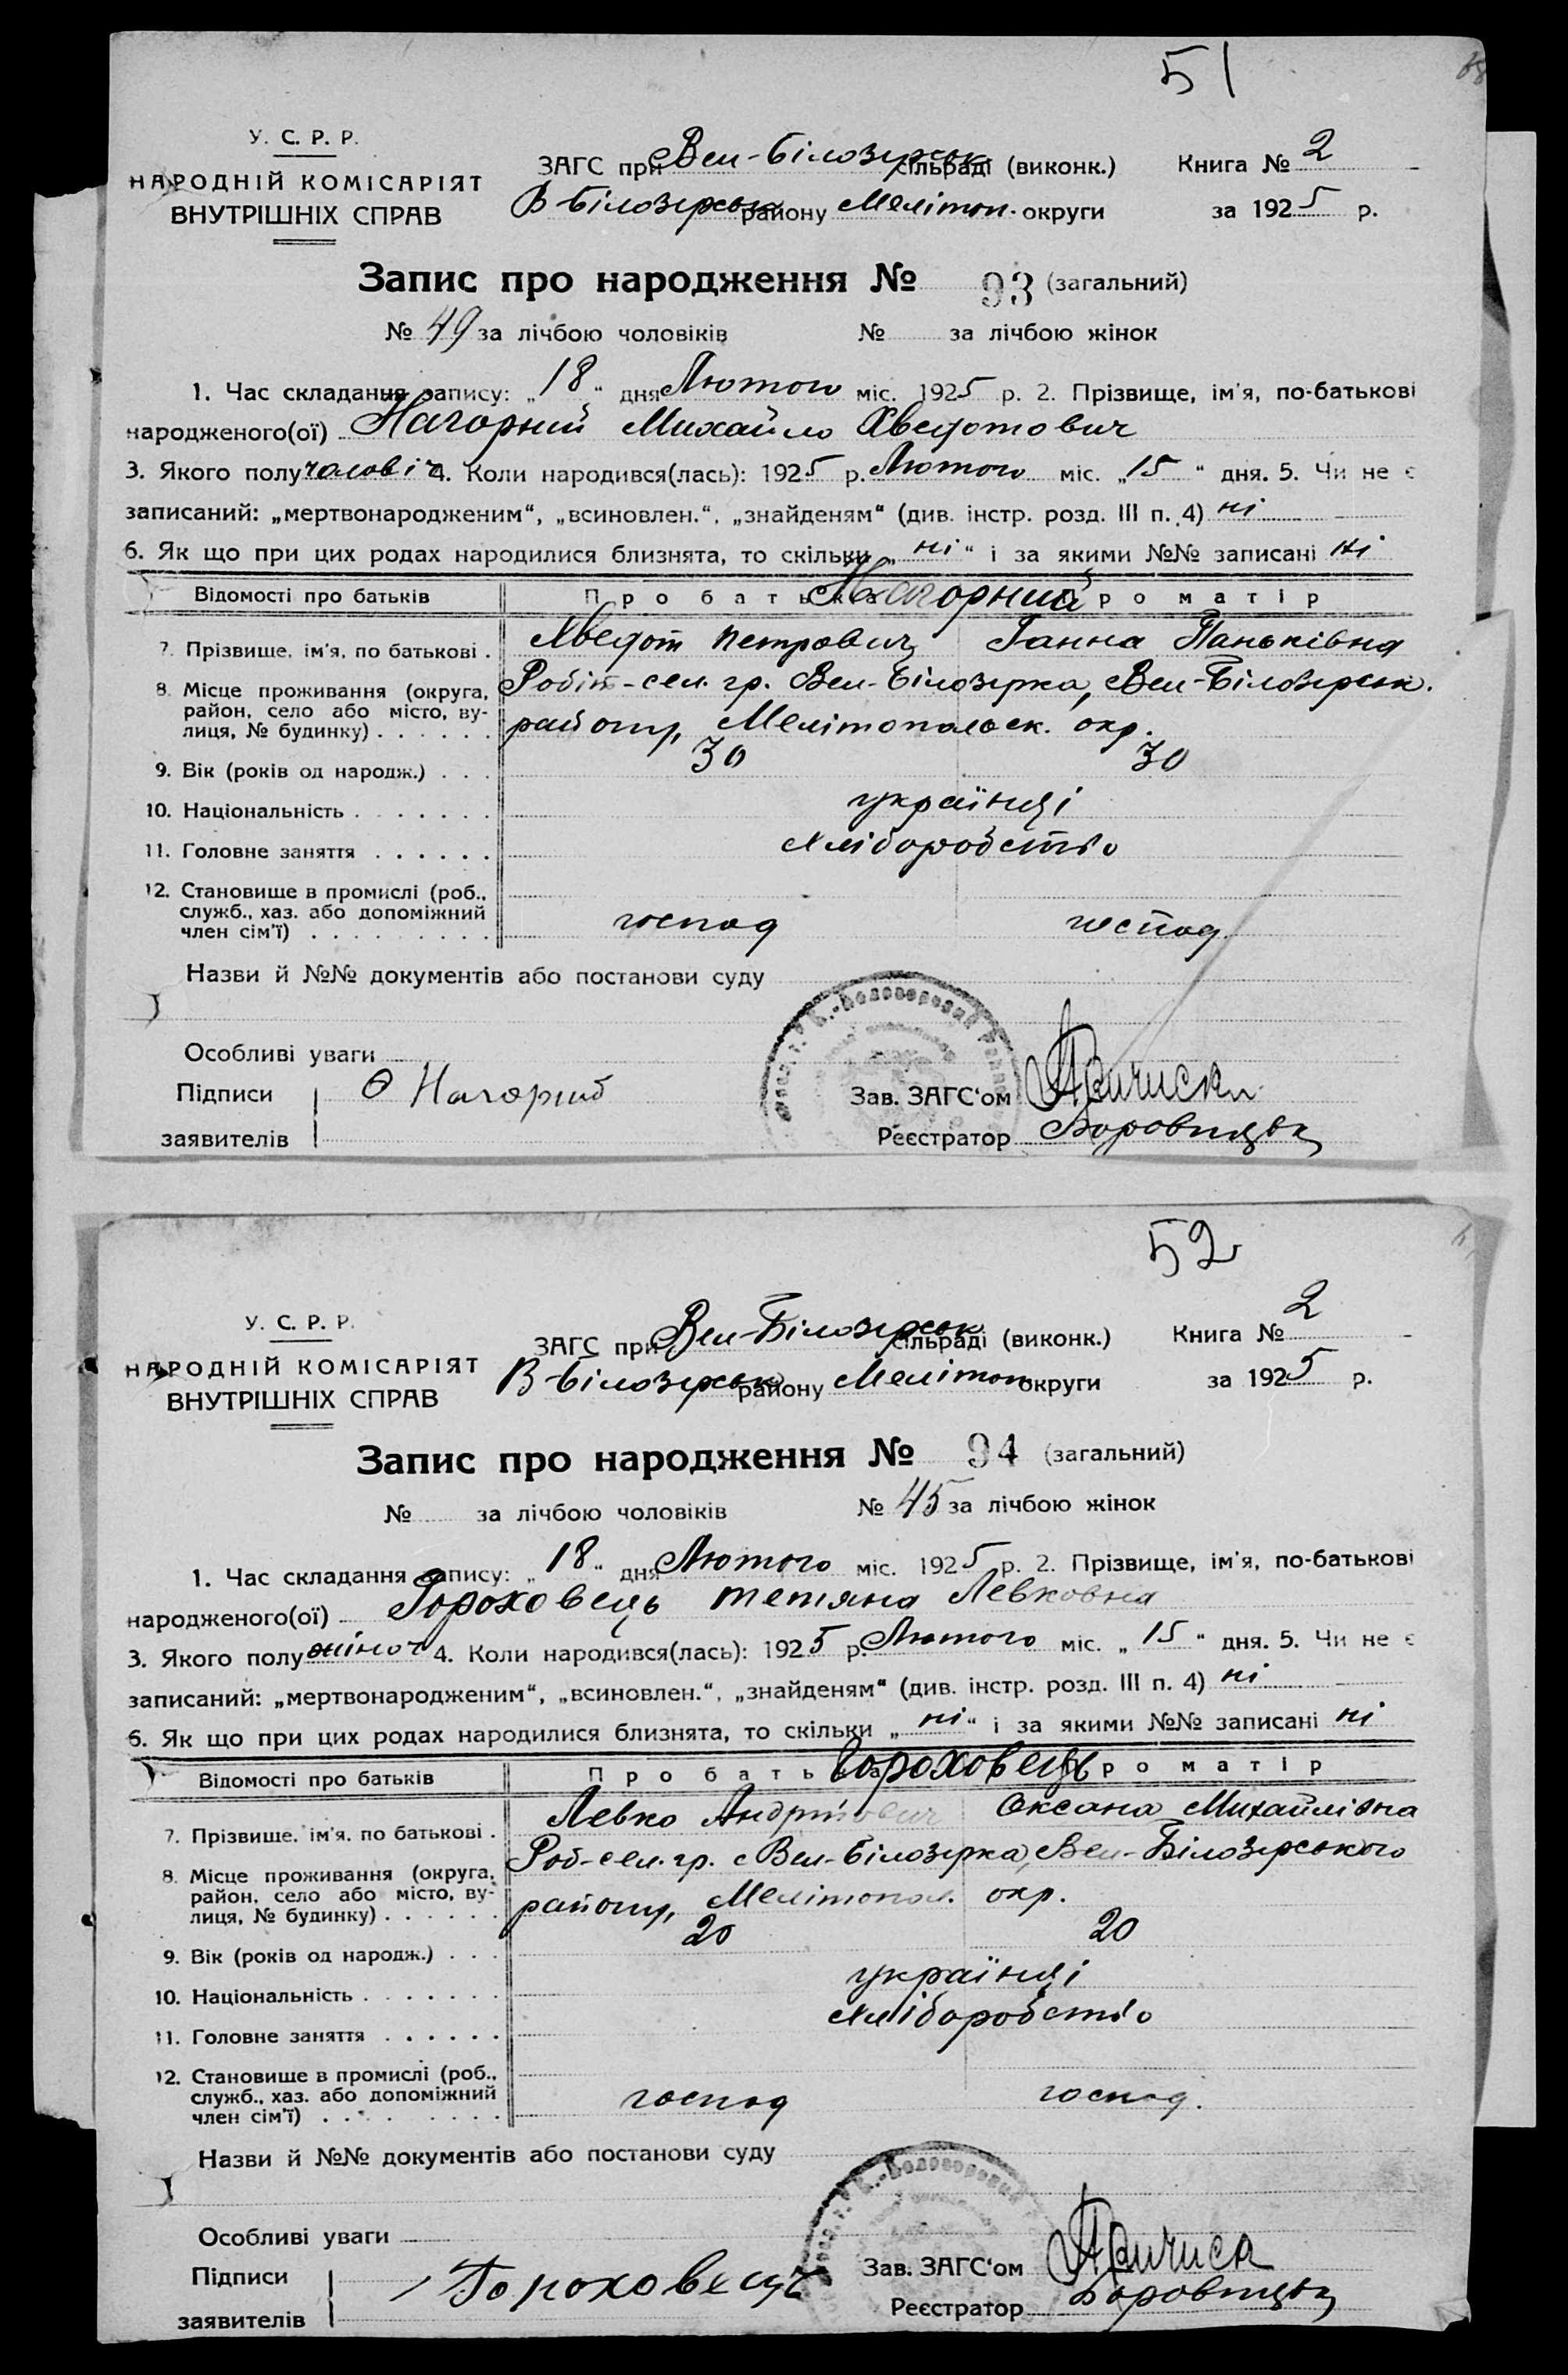 51
У. С. Р. Р.
НАРОДНІЙ КОМІСАРІЯТ
ВНУТРІШНІХ СПРАВ
ЗАГС при Вел-Білозерськ сільраді (виконк.) Книга № 2
В-Білозерськ району Мелітоп. округи за 1925 р.
Запис про народження № 93 (загальний)
№ 49 за лічбою чоловіків № за лічбою жінок
1. Час складання запису: „18“ дня Лютого міс. 1925 р. 2. Прізвище, ім'я, по-батькові
народженого(ої) Нагорний Михайло Хведотович
3. Якого полу чоловіч 4. Коли народився(лась): 1925 р. Лютого міс. „15“ дня. 5. Чи не є
записаний: „мертвонародженим“, „всиновлен.“, „знайденям“ (див. інстр. розд. III п. 4) ні
6. Як що при цих родах народилися близнята, то скільки „ні“ і за якими №№ записані ні
Відомості про батьків Про батька Нагорний Про матір
7. Прізвище, ім'я, по батькові . Хведот Петрович Ганна Паньківна
8. Місце проживання (округа, Робіт-сел. гр. с Вел-Білозерка, Вел-Білозерськ.
район, село або місто, ву-
лиця, № будинку) . . . . . . району, Мелітопольск. окр.
9. Вік (років од народж.) . . . 30 30
10. Національність . . . . . . . українці
11. Головне заняття . . . . . . хліборобство
12. Становище в промислі (роб.,
служб., хаз. або допоміжний
член сім'ї) . . . . . . . . . господ господ.
Назви й №№ документів або постанови суду
Особливі уваги
Підписи Ѳ Нагорний Зав. ЗАГС'ом
заявителів Реєстратор
52
У. С. Р. Р.
НАРОДНІЙ КОМІСАРІЯТ
ВНУТРІШНІХ СПРАВ
ЗАГС при Вел-Білозерськ сільраді (виконк.) Книга № 2
В-Білозерськ району Мелітоп округи за 1925 р.
Запис про народження № 94 (загальний)
№ за лічбою чоловіків № 45 за лічбою жінок
1. Час складання запису: „18“ дня Лютого міс. 1925 р. 2. Прізвище, ім'я, по-батькові
народженого(ої) Гороховець Тетяна Левковна
3. Якого полу жіноч 4. Коли народився(лась): 1925 р. Лютого міс. „15“ дня. 5. Чи не є
записаний: „мертвонародженим“, „всиновлен.“, „знайденям“ (див. інстр. розд. III п. 4) ні
6. Як що при цих родах народилися близнята, то скільки „ні“ і за якими №№ записані ні
Відомості про батьків Про батька Гороховець Про матір
7. Прізвище, ім'я, по батькові . Левко Андрійович Оксана Михайлівна
8. Місце проживання (округа, Роб-сел. гр. с Вел-Білозерка, Вел-Білозерського
район, село або місто, ву-
лиця, № будинку) . . . . . . району, Мелітопол. окр.
9. Вік (років од народж.) . . . 20 20
10. Національність . . . . . . . українці
11. Головне заняття . . . . . . хліборобство
12. Становище в промислі (роб.,
служб., хаз. або допоміжний
член сім'ї) . . . . . . . . . господ господ.
Назви й №№ документів або постанови суду
Особливі уваги
Підписи Гороховець Зав. ЗАГС'ом
заявителів Реєстратор